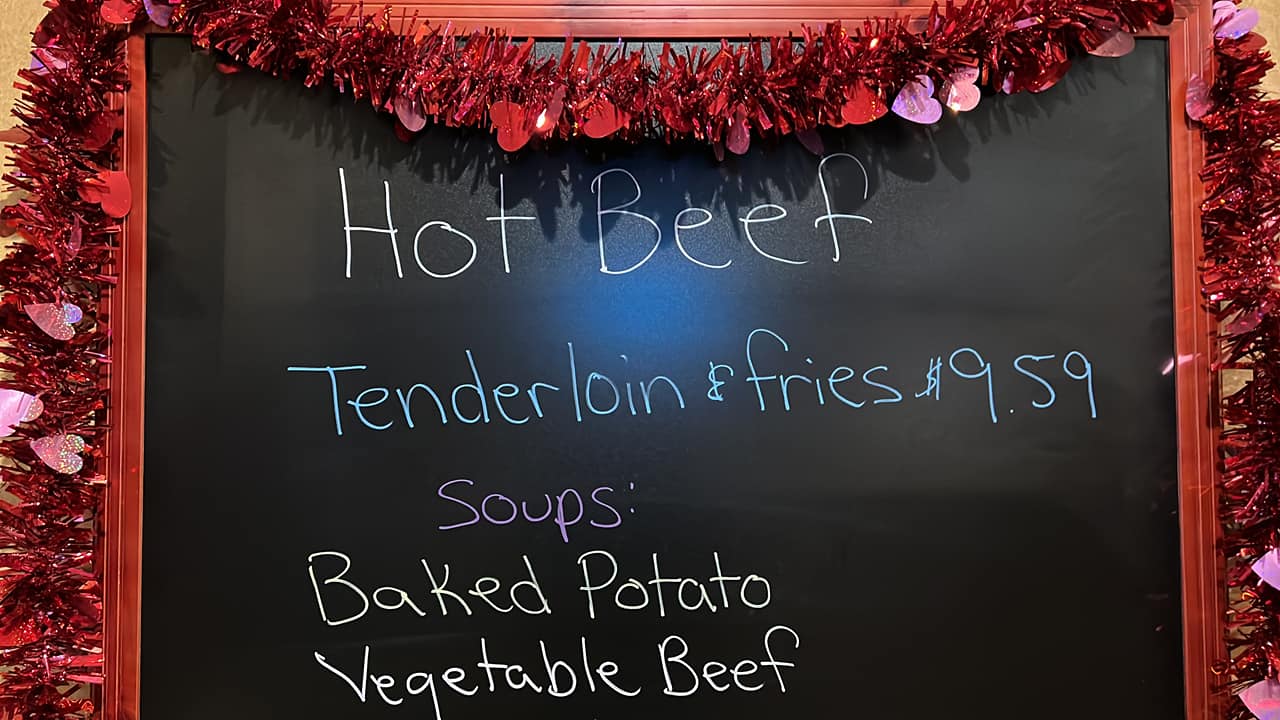 Hot Beef
Tenderloin & fries $9.59
Soups:
Baked Potato
Vegetable Beef